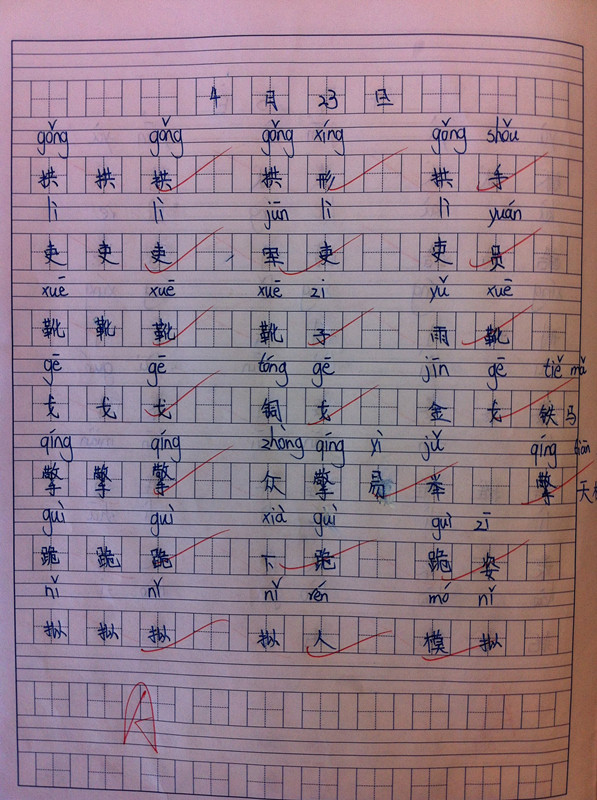 4月23日
gǒng gǒng gǒng xíng gǒng shǒu
拱 拱 拱 拱形 拱手
lì lì jūn lì lì yuán
吏 吏 吏 军吏 吏员
xuē xuē xuē zi yǔ xuē
靴 靴 靴 靴子 雨靴
gē gē tóng gē jīn gē tiě mǎ
戈 戈 戈 铜戈 金戈铁马
qíng qíng zhòng qíng yì jǔ qíng tiān
擎 擎 擎 众擎易举 擎天
guì guì xià guì guì zī
跪 跪 跪 下跪 跪姿
nǐ nǐ nǐ rén mó nǐ
拟 拟 拟 拟人 模拟
A